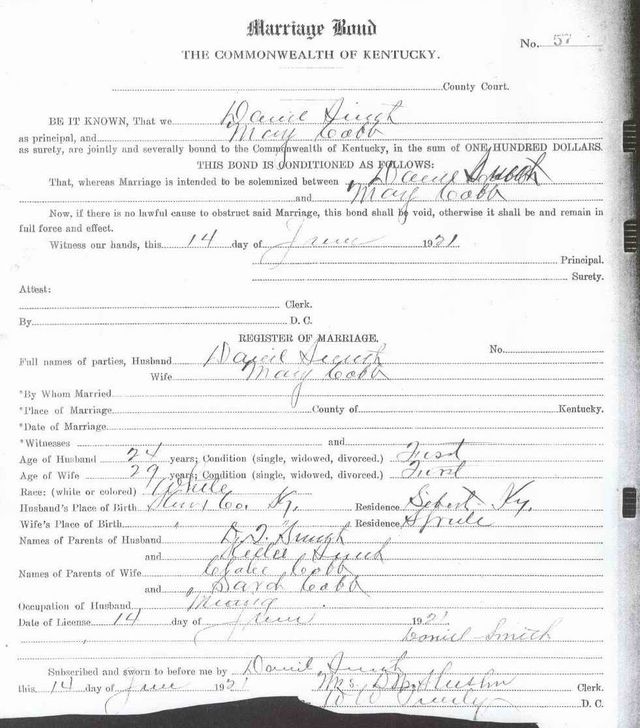 Marriage Bond
No. 57
THE COMMONWEALTH OF KENTUCKY.
County Court.
BE IT KNOWN, That we Daniel Smith
as principal, and May Cobb
as surety, are jointly and severally bound to the Commonwealth of Kentucky, in the sum of ONE HUNDRED DOLLARS.
THIS BOND IS CONDITIONED AS FOLLOWS:
That, whereas Marriage is intended to be solemnized between Daniel Smith
and May Cobb
Now, if there is no lawful cause to obstruct said Marriage, this bond shall be void, otherwise it shall be and remain in
full force and effect.
Witness our hands, this 14 day of June 1921
Principal.
Surety.
Attest:
Clerk.
By D. C.
REGISTER OF MARRIAGE.
Full names of parties, Husband Daniel Smith No.
Wife May Cobb
*By Whom Married
*Place of Marriage County of Kentucky.
*Date of Marriage
*Witnesses and
Age of Husband 24 years; Condition (single, widowed, divorced.) First
Age of Wife 29 years; Condition (single, widowed, divorced.) First
Race: (white or colored) White
Husband's Place of Birth Co. Ky. Residence Sibert Ky.
Wife's Place of Birth " Residence Sprule
Names of Parents of Husband D. Smith
and Smith
Names of Parents of Wife Cobb
and Sarah Cobb
Occupation of Husband Mining
Date of License 14 day of June 1921
Daniel Smith
Subscribed and sworn to before me by Daniel Smith
this 14 day of June 1921 Mrs. Clerk.
D. C.